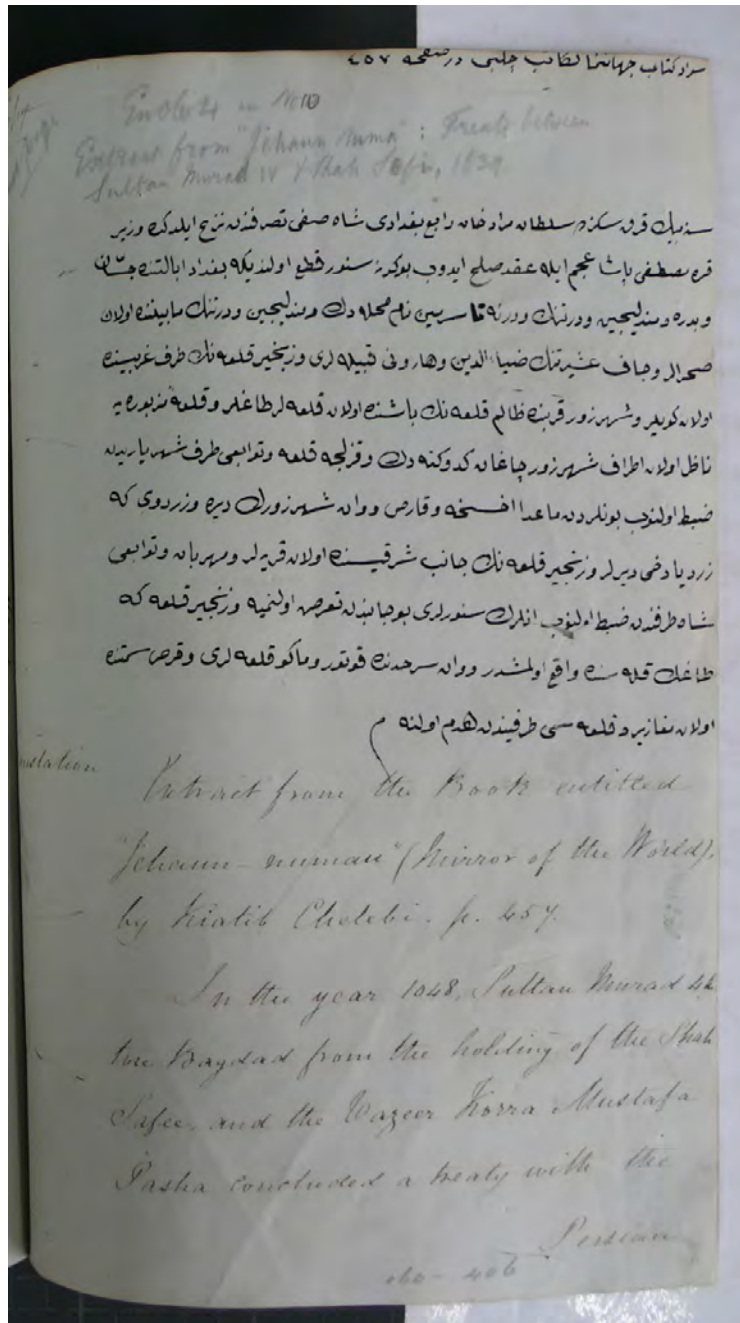 سواد کتاب جهاننما لکاتب چلبی در صفحه ٤٥٧
Enclo 24 in No 10
Extract from "Jehann Numa": Treaty between
Sultan Murad IV & Shah Sefi, 1639
سنه بیك قرق سكزده سلطان مراد خان رابع بغدادی شاه صفی تصرفندن نزع ایلدکده وزیر
قره مصطفی پاشا عجم ایله عقد صلح ایدوب بوکونه سنور قطع اولندیکه بغداد ایالتنده جسّان
و بدره و مندلیجین و درتنك و درنه تا سرمین نام محله دك و مندلیجین و درتنك مابیننده اولان
صحرالر و جاف عشیرتنك ضیاء الدین و هارونی قبیله لری و زنجیر قلعه نك طرف غربیسنده
اولان کویلر و شهرزور قربنده ظالم قلعه نك باشنده اولان قلعه لر طاغلر و قلعهٔ مزبوره یه
ناظل اولان اطراف شهرزور چاغان کدوکنه دك و قزلجه قلعه و توابعی طرف شهریاریدن
ضبط اولنوب بونلردن ماعدا اخسخه و قارص و وان شهرزورك دیره و زردوی که
زردیا دخی دیرلر و زنجیر قلعه نك جانب شرقیسنده اولان قریه لر و مهربان و توابعی
شاه طرفندن ضبط اولنوب انلرك سنورلری بو جانبدن تعرض اولنمیه و زنجیر قلعه که
طاغك قله سنده واقع اولمشدر و وان سرحدنده قوتور و ماکو قلعه لری و قرص سمتنده
اولان مغازبرد قلعه سی طرفیندن هدم اولنه م
Extract from the Book entitled
"Jehann-numan" (Mirror of the World),
by Kiatib Chelebi. p. 457.
In the year 1048, Sultan Murad 4th
tore Bagdad from the holding of the Shah
Safee, and the Vazeer Korra Mustafa
Pasha concluded a treaty with the
Persian